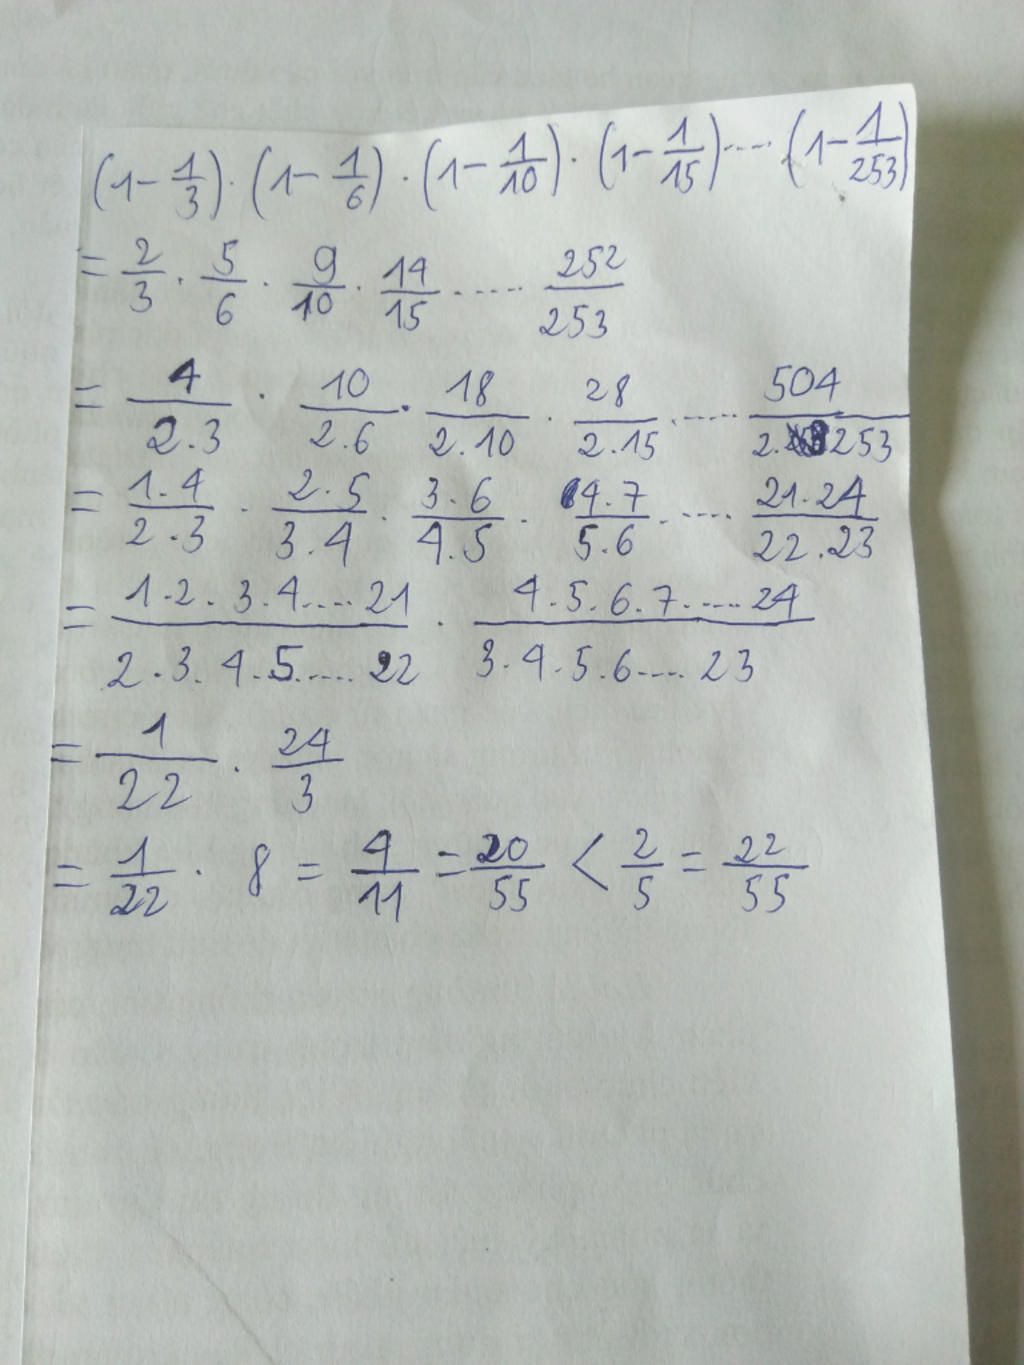 (1 - 1/3) . (1 - 1/6) . (1 - 1/10) . (1 - 1/15) ..... (1 - 1/253)
= 2/3 . 5/6 . 9/10 . 14/15 ..... 252/253
= 4/2.3 . 10/2.6 . 18/2.10 . 28/2.15 ..... 504/2.253
= 1.4/2.3 . 2.5/3.4 . 3.6/4.5 . 4.7/5.6 ..... 21.24/22.23
= 1.2.3.4.....21/2.3.4.5.....22 . 4.5.6.7.....24/3.4.5.6....23
= 1/22 . 24/3
= 1/22 . 8 = 4/11 = 20/55 < 2/5 = 22/55